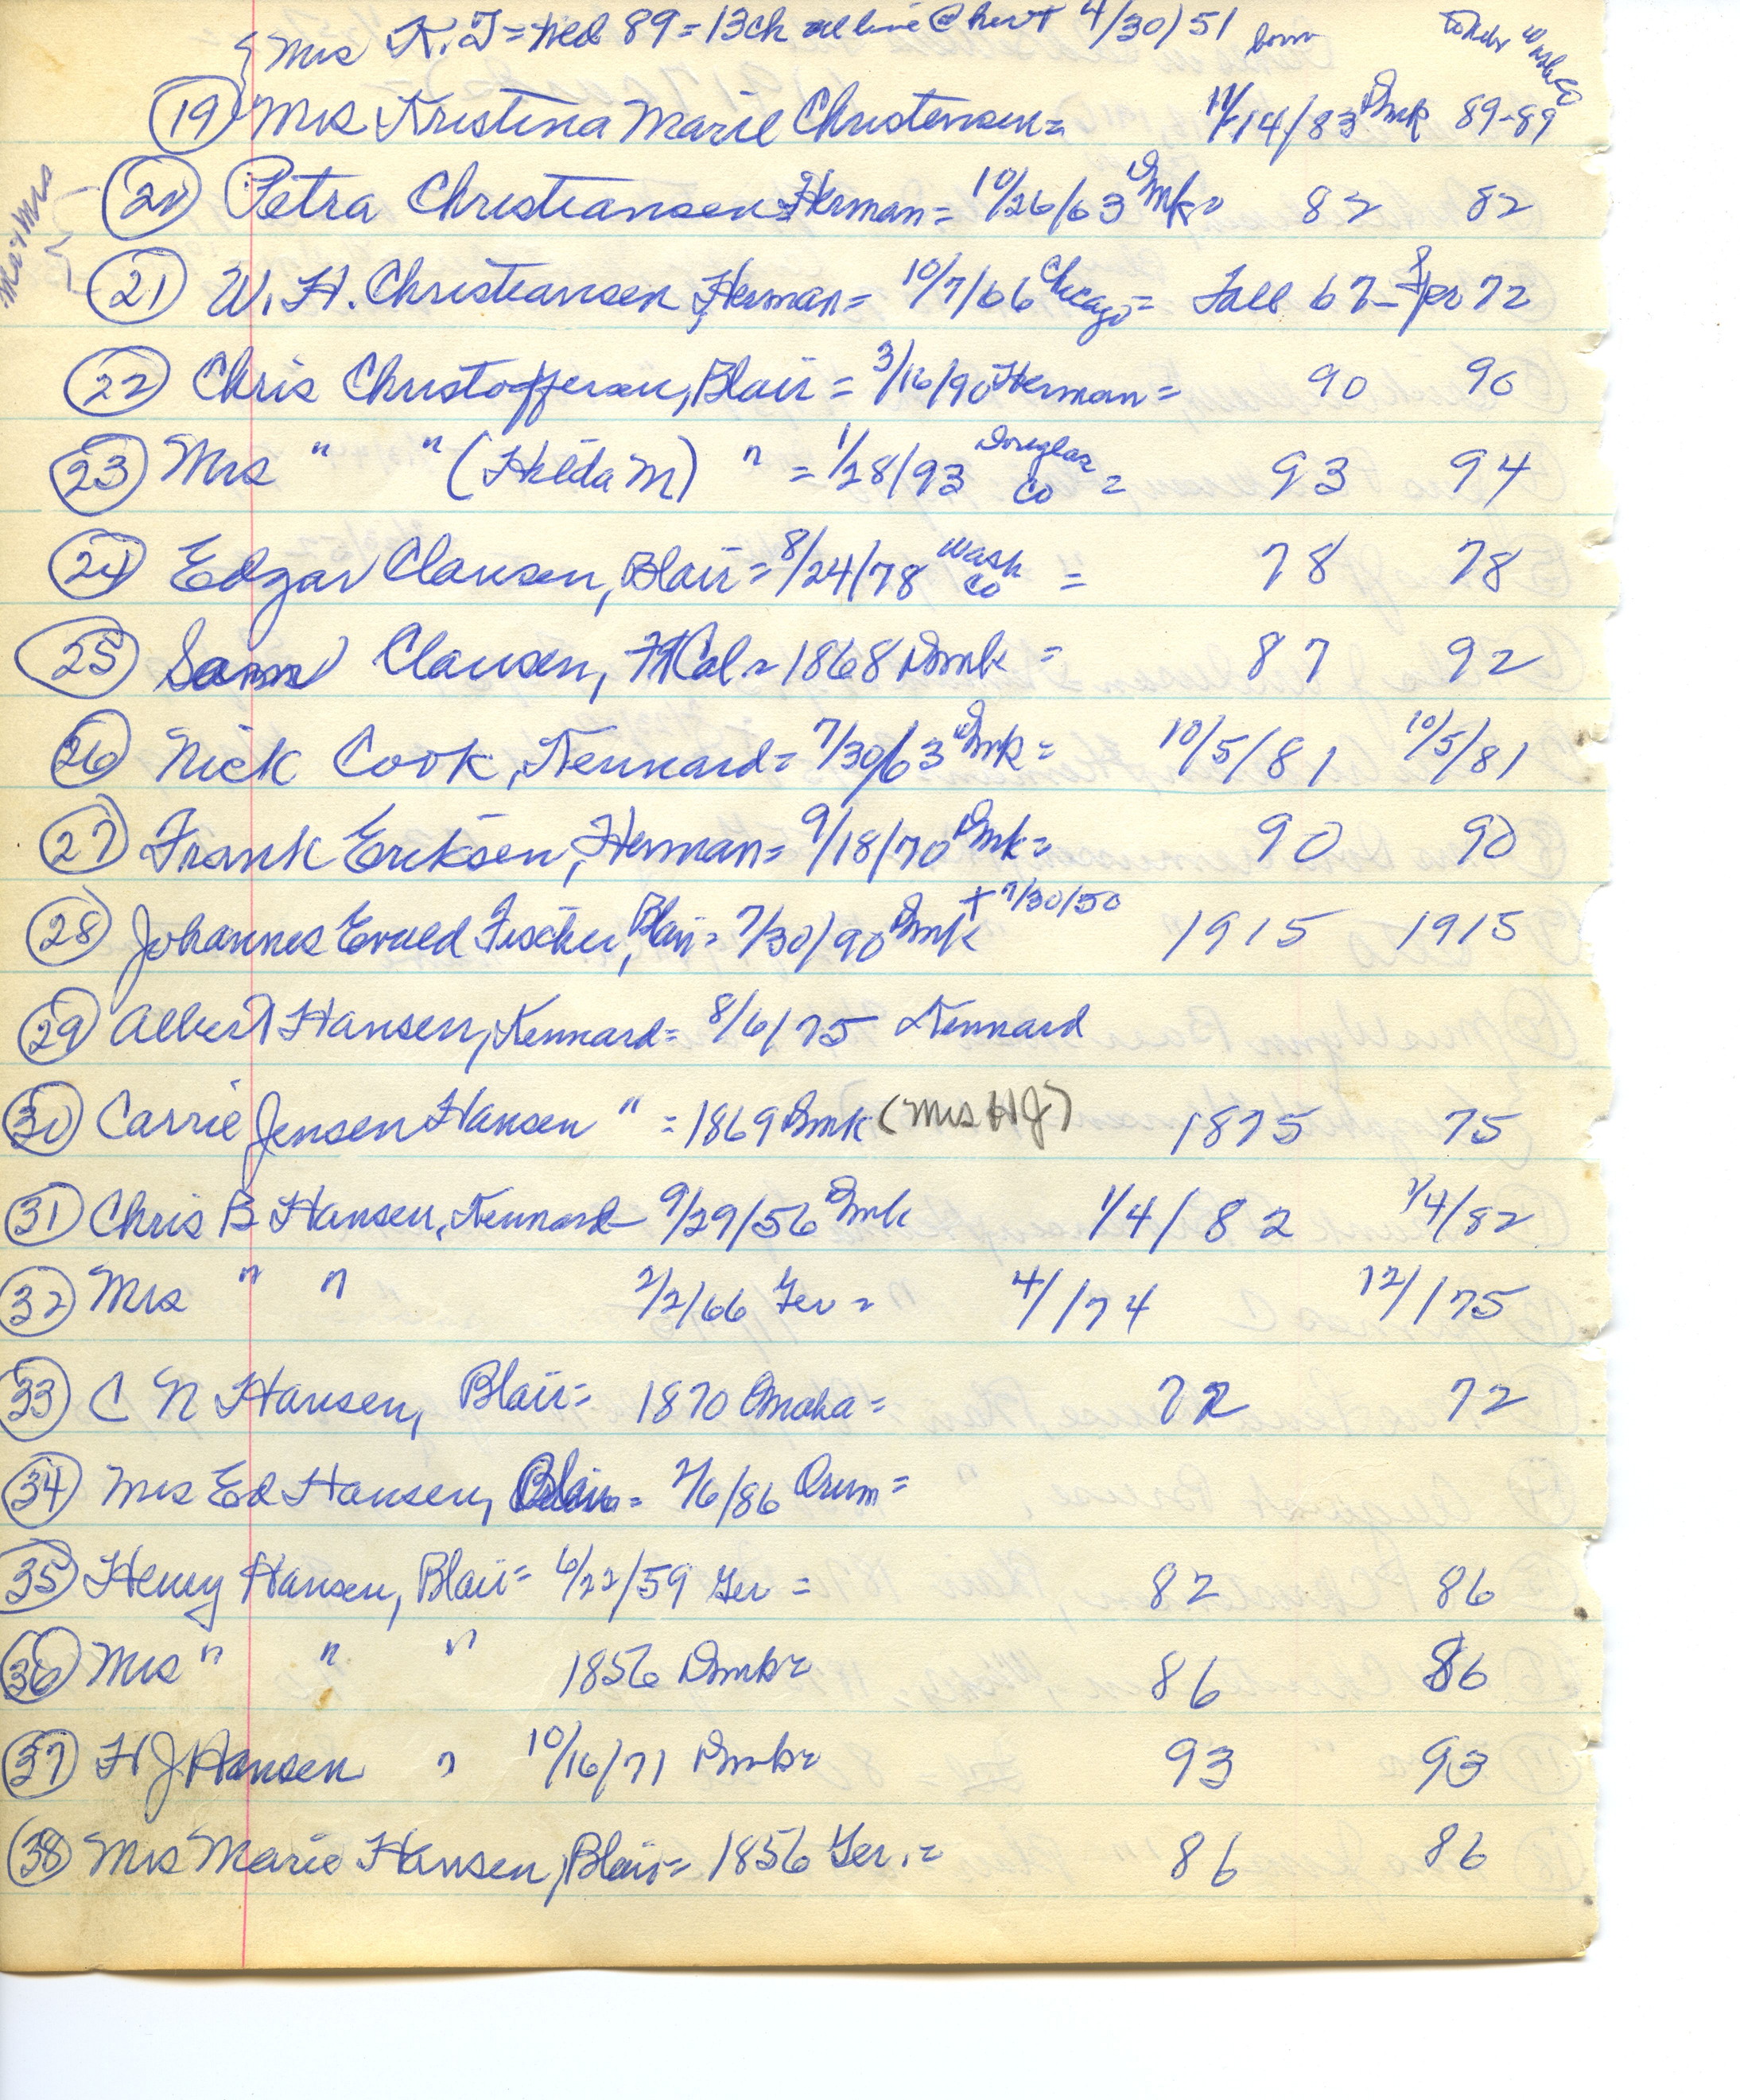 Mrs K. J = Wed 89 = 13ch all live @ hert 4/30/51 born to Nebr Wash Co
(19) Mrs Kristina Marie Christensen = 11/14/83 Dmk 89-89
Mr & Mrs
(20) Petra Christiansen Herman = 10/26/63 Dmk = 82 82
(21) W. H. Christiansen, Herman = 10/7/66 Chicago = Fall 67 - Spr 72
(22) Chris Christoffersen, Blair = 3/16/90 Herman = 90 90
(23) Mrs " " (Hilda M) " = 1/28/93 Douglas Co = 93 94
(24) Edgar Clausen, Blair = 8/24/78 Wash Co = 78 78
(25) Sam Clausen, Ft Cal = 1868 Dmk = 87 92
(26) Nick Cook, Kennard = 7/30/63 Dmk = 10/5/81 10/5/81
(27) Frank Eriksen, Herman = 9/18/70 Dmk = 90 90
(28) Johannes Evald Fischer, Blair = 7/30/90 Dmk + 7/30/50 1915 1915
(29) Albert Hansen, Kennard = 8/6/75 Kennard
(30) Carrie Jensen Hansen " = 1869 Dmk (Mrs HJ) 1875 75
(31) Chris B Hansen, Kennard 9/29/56 Dmk 1/4/82 1/4/82
(32) Mrs " " 2/2/66 Ger = 4/174 12/175
(33) C N Hansen, Blair = 1870 Omaha = 72 72
(34) Mrs Ed Hansen, Blair = 2/6/86 Orum =
(35) Henry Hansen, Blair = 6/22/59 Ger = 82 86
(36) Mrs " " " 1856 Dmk = 86 86
(37) H J Hansen " 10/16/71 Dmk = 93 93
(38) Mrs Marie Hansen, Blair = 1856 Ger. = 86 86